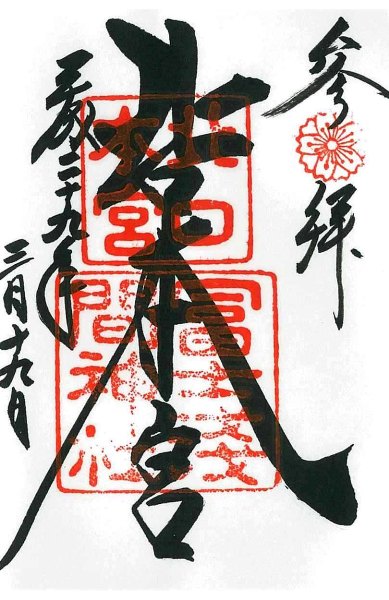 参拝
北口本宮
北口
本宮
冨士浅
間神社
平成二十九年
三月十九日